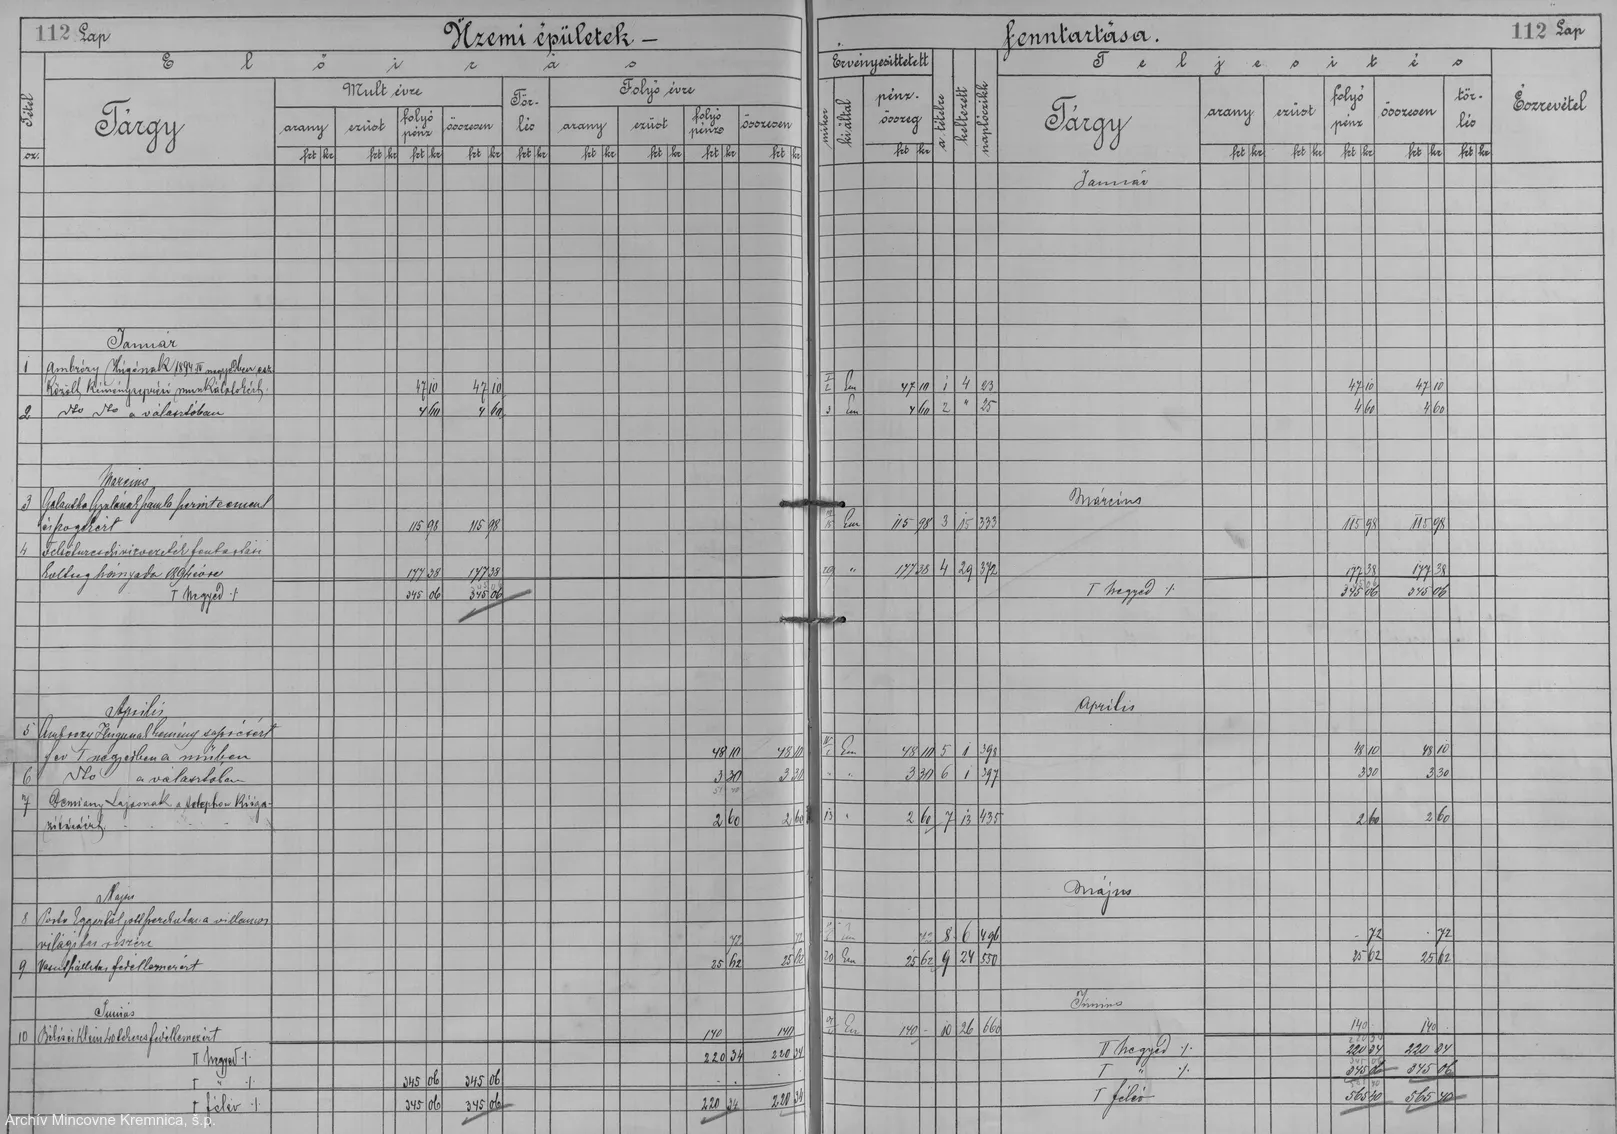 112 Lap
Üzemi épületek —
fenntartása.
112 Lap
Előírás
Tétel sz.
Tárgy
Mult évre
arany
ezüst
folyó pénz
összesen
Törlés
Folyó évre
arany
ezüst
folyó pénz
összesen
frt kr frt kr frt kr frt kr frt kr frt kr frt kr frt kr frt kr
Érvényesíttetett
mikor
ki által
pénzösszeg
frt kr
a tételre
keltezett
naplóczikk
Teljesítés
Tárgy
arany
ezüst
folyó pénz
összesen
törlés
frt kr frt kr frt kr frt kr frt kr
Észrevétel
Január
Január
1 Ambrózy Hugónak 1894 IV negyedben
munkálatokért 47 10 47 10 Em 47 10 1 4 23 47 10 47 10
2 dto dto a választóban 4 60 4 60 3 Em 4 60 2 " 25 4 60 4 60
Marcius
Március
3
115 98 115 98 Em 115 98 3 15 333 115 98 115 98
4
költség hányada 1894 évre 177 38 177 38 29 " 177 38 4 29 372 177 38 177 38
I negyed ./. 345 06 345 06 I negyed ./. 345 06 345 06
Április
Április
5 Ambrozy Hugonak kémény
I negyedben a műben 48 10 48 10 Em 48 10 5 1 398 48 10 48 10
6 dto a választoban 3 30 3 30 " " 3 30 6 1 397 3 30 3 30
7 Demiany Lajosnak a telephon kiiga-
zításáért 2 60 2 60 13 " 2 60 7 13 435 2 60 2 60
Majus
Május
8 Posta a villamos
világitás részére 72 72 72 8 6 496 72 72
9 Vasuthállitás fedéllemezért 25 62 25 62 20 Em 25 62 9 24 550 25 62 25 62
Junius
Június
10 fedéllemezért 140 140 Em 140 - 10 26 660 140 140
II negyed ./. 220 34 220 34 II negyed ./. 220 34 220 34
I " ./. 345 06 345 06 I " ./. 345 06 345 06
I félév ./. 345 06 345 06 220 34 220 34 I félév 565 40 565 40
Archív Mincovne Kremnica, š.p.